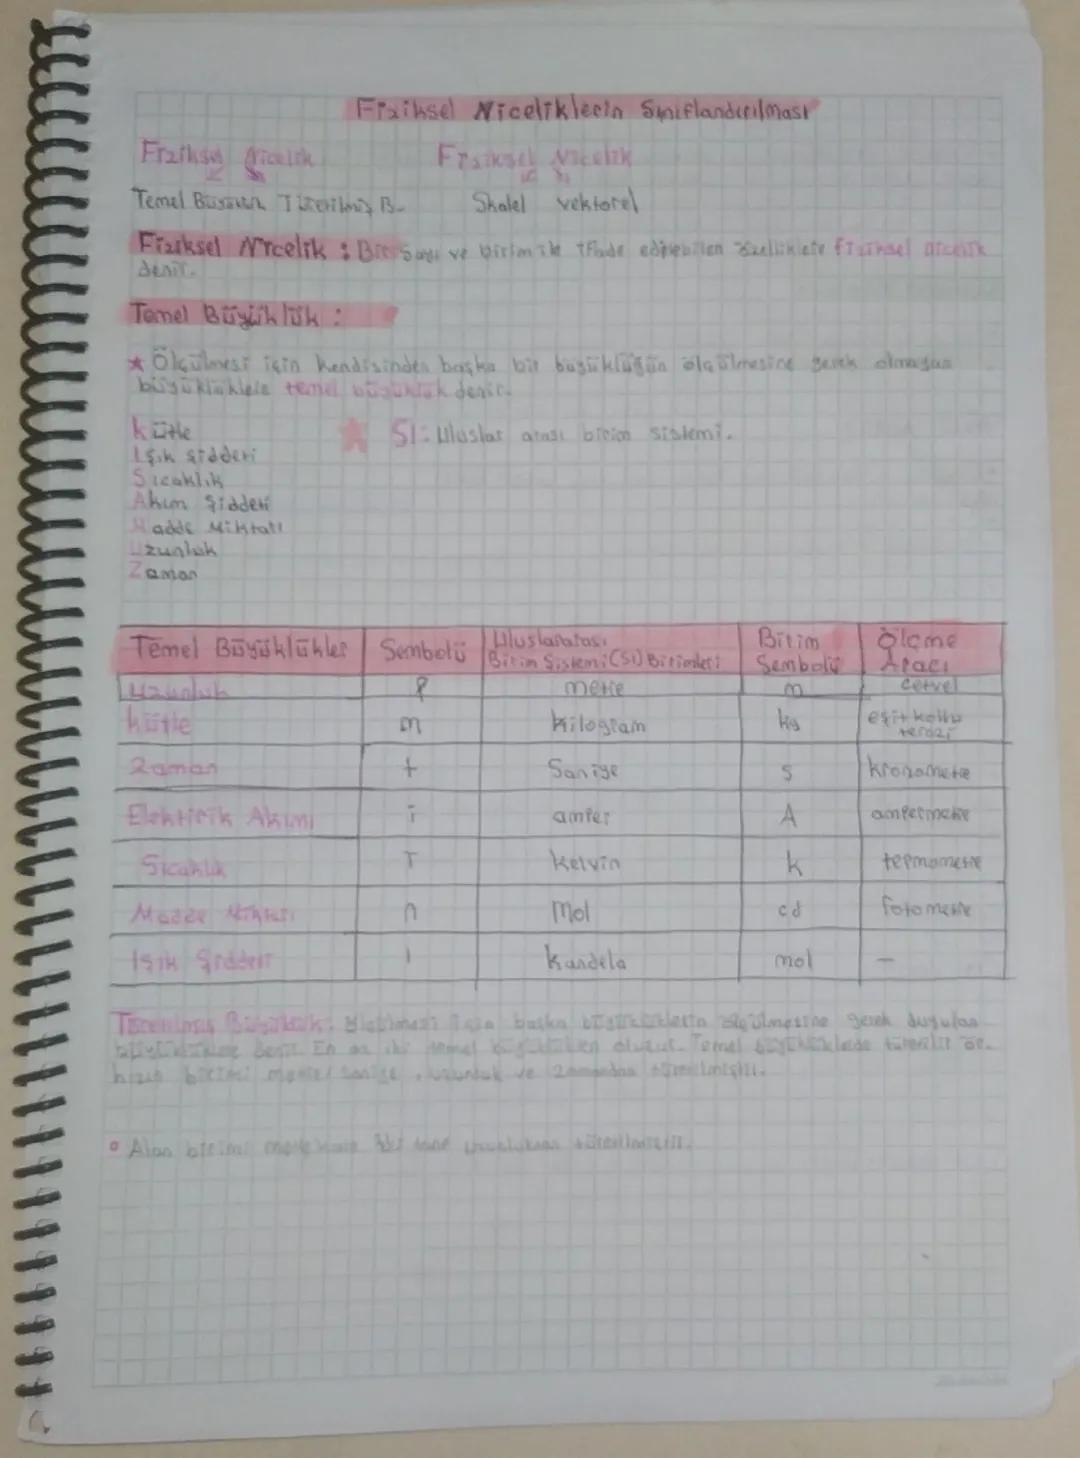 Fiziksel Niceliklerin Sınıflandırılması
Fiziksel Nicelik Fiziksel Nicelik
Temel Büyüklük Türetilmiş B. Skalel vektorel
Fiziksel Nicelik : Bir Sayı ve birim ile ifade edilebilen özelliklere fiziksel nicelik
denir.
Temel Büyüklük :
★ Ölçülmesi için kendisinden başka bir büyüklüğün ölçülmesine gerek olmayan
büyüklüklere temel büyüklük denir.
Kütle ★ SI: Uluslar arası birim sistemi.
Işık şiddeti
Sıcaklık
Akım Şiddeti
Madde Miktarı
Uzunluk
Zaman
Temel Büyüklükler Sembolü Uluslararası Birim Ölçme
Birim Sistemi (SI) Birimleri Sembolü Aracı
Uzunluk l metre m cetvel
kütle m kilogram kg eşit kollu
terazi
Zaman t Saniye s kronometre
Elektirik Akımı i amper A ampermetre
Sıcaklık T Kelvin k termometre
Madde Miktarı n Mol cd fotometre
Işık Şiddeti I kandela mol -
Türetilmiş Büyüklük: için başka büyüklüklerin ölçülmesine gerek duyulan
denir. En az iki temel büyüklükten oluşur. Temel büyüklüklerde türetilir ör.
hızın birimi metre/saniye, uzunluk ve zamandan türetilmiştir.
• Alan birimi metrekare iki tane uzunluktan türetilmiştir.